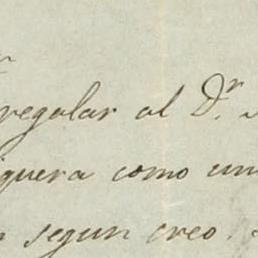 regalar al D.r
como un
segun creo.